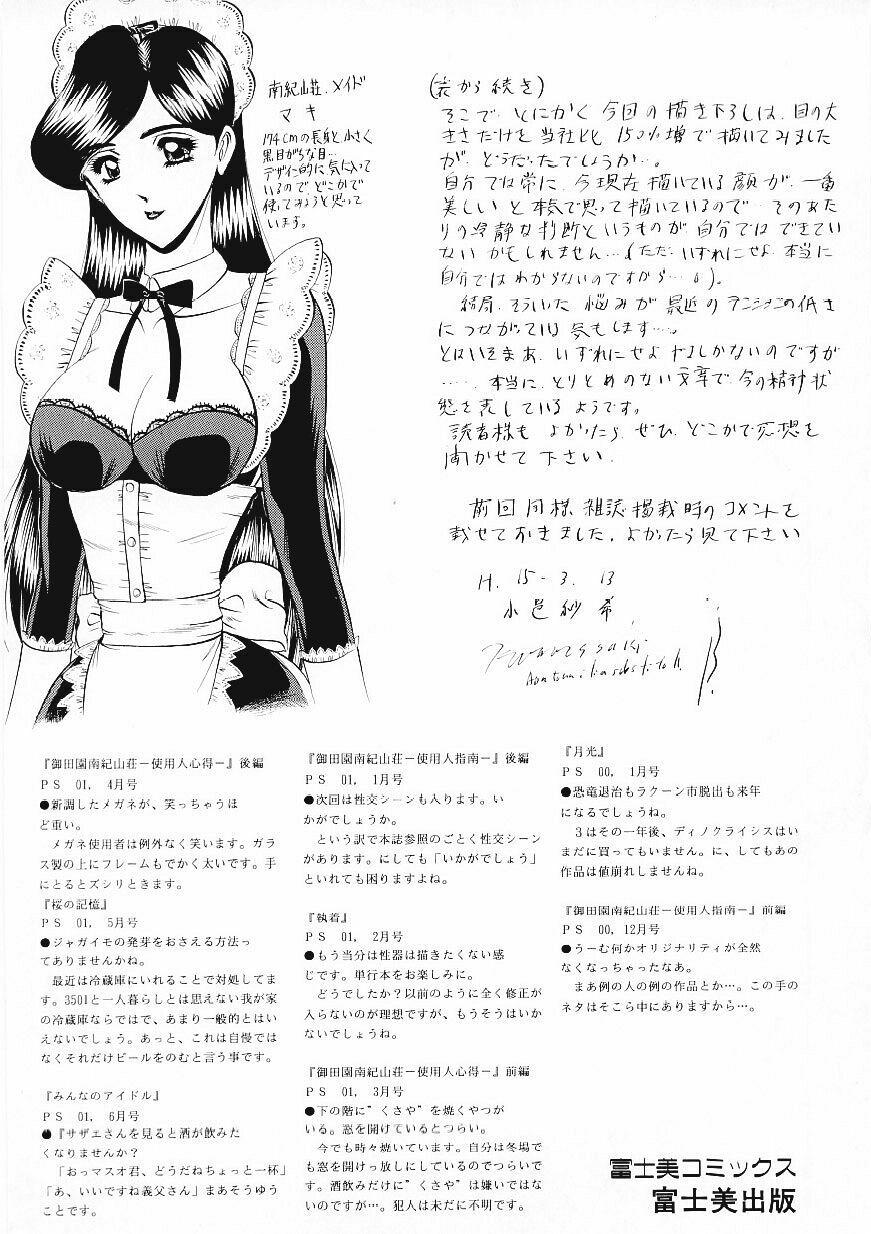 (表から続き)
そこで、とにかく今回の描き下ろしは、目の大
きさだけを当社比150%増で描いてみました
が、どうだったでしょうか…。
自分では常に、今現在描いている顔が、一番
美しいと本気で思って描いているので…そのあた
りの冷静な判断というものが自分ではできてい
ないかもしれません…(ただ、いずれにせよ、本当に
自分ではわからないのですから…。)。
結局、そういった悩みが最近のテンションの低さ
につながっている気もします…。
とはいえまあ、いずれにせよやるしかないのですが
……、本当に、とりとめのない文章で今の精神状
態を表しているようです。
読者様も、よかったら、ぜひ、どこかで感想を
聞かせて下さい.
前回同様、雑誌掲載時のコメントを
載せておきました。よかったら見て下さい
H. 15-3. 13
小邑紗希
南紀山荘.メイド
マキ
174cmの長身と小さく
黒目がちな目…
デザイン的に気に入って
いるのでどこかで
使ってみようと思って
います。
『月光』
PS 00, 1月号
●恐竜退治もラクーン市脱出も来年
になるでしょうね。
3はその一年後、ディノクライシスはい
まだに買ってもいません。に、してもあの
作品は値崩れしませんね。
『御田園南紀山荘−使用人指南−』前編
PS 00, 12月号
●うーむ何かオリジナリティが全然
なくなっちゃったなあ。
まあ例の人の例の作品とか…。この手の
ネタはそこら中にありますから…。
『御田園南紀山荘−使用人指南−』後編
PS 01, 1月号
●次回は性交シーンも入ります。い
かがでしょうか。
という訳で本誌参照のごとく性交シーン
があります。にしても「いかがでしょう」
といれても困りますよね。
『執着』
PS 01, 2月号
●もう当分は性器は描きたくない感
じです。単行本をお楽しみに。
どうでしたか?以前のように全く修正が
入らないのが理想ですが、もうそうはいか
ないでしょうね。
『御田園南紀山荘−使用人心得−』前編
PS 01, 3月号
●下の階に”くさや”を焼くやつが
いる。窓を開けているとつらい。
今でも時々焼いています。自分は冬場で
も窓を開けっ放しにしているのでつらいで
す。酒飲みだけに”くさや”は嫌いではな
いのですが…。犯人は未だに不明です。
『御田園南紀山荘−使用人心得−』後編
PS 01, 4月号
●新調したメガネが、笑っちゃうほ
ど重い。
メガネ使用者は例外なく笑います。ガラ
ス製の上にフレームもでかく太いです。手
にとるとズシリときます。
『桜の記憶』
PS 01, 5月号
●ジャガイモの発芽をおさえる方法っ
てありませんかね。
最近は冷蔵庫にいれることで対処してま
す。350lと一人暮らしとは思えない我が家
の冷蔵庫ならではで、あまり一般的とはい
えないでしょう。あっと、これは自慢では
なくそれだけビールをのむと言う事です。
『みんなのアイドル』
PS 01, 6月号
●『サザエさんを見ると酒が飲みた
くなりませんか?
「おっマスオ君、どうだねちょっと一杯」
「あ、いいですね義父さん」まあそうゆう
ことです。
富士美コミックス
富士美出版